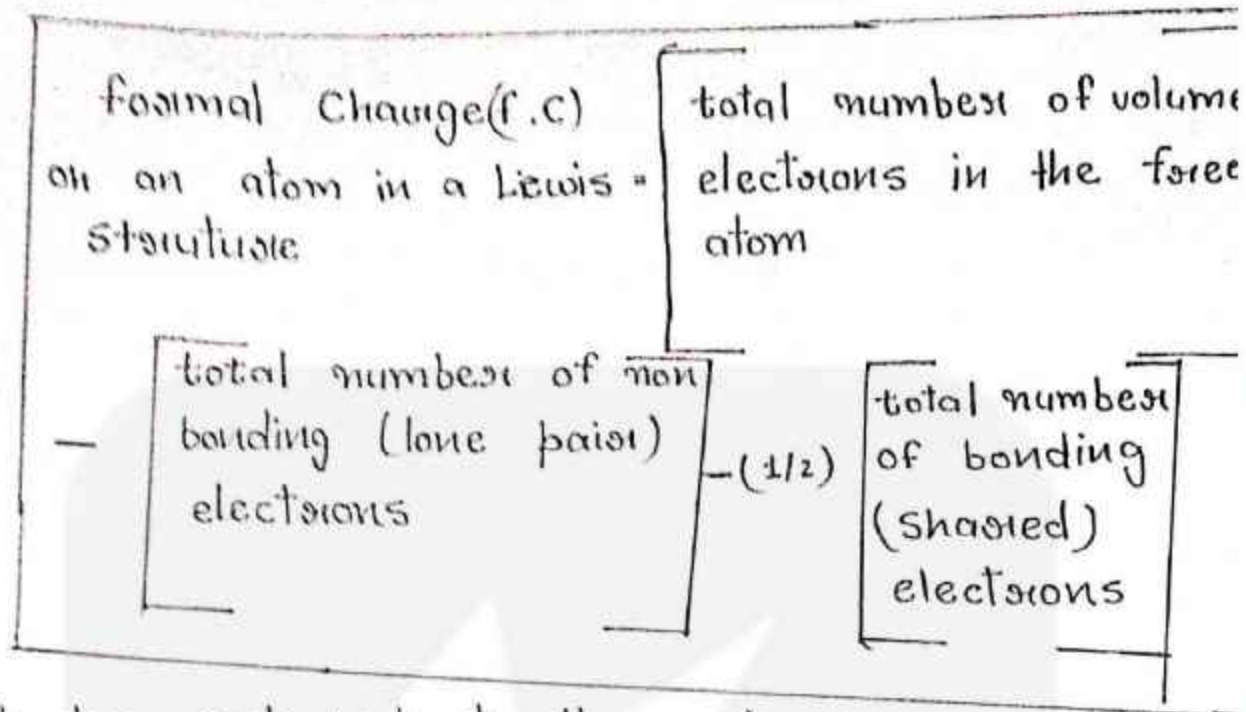 formal Charge (f.c)
on an atom in a Lewis =
Struture
total number of volume
electrons in the free
atom
—
total number of non
bonding (lone pair)
electrons
-(1/2)
total number
of bonding
(Shared)
electrons